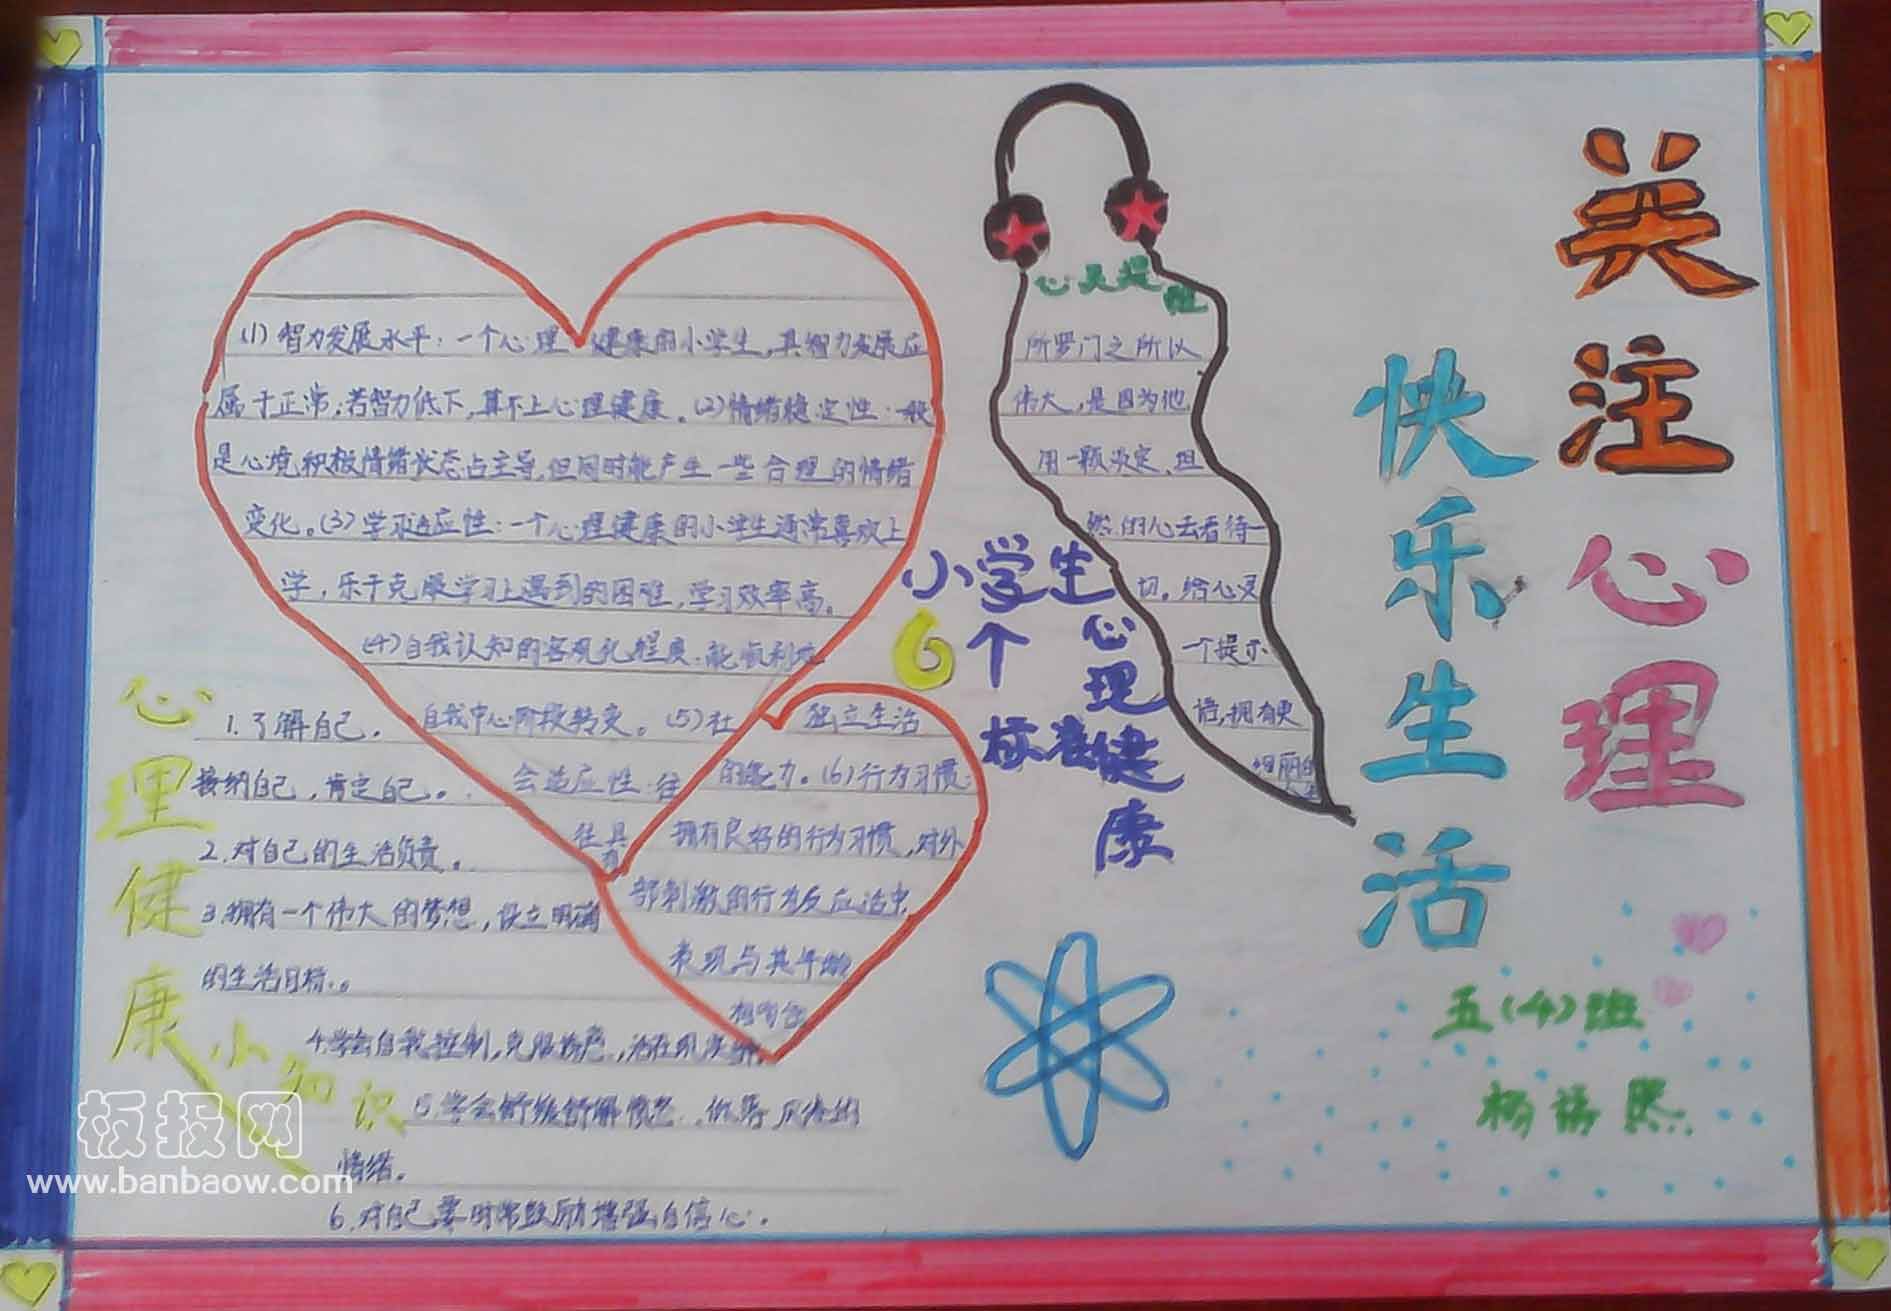 关注心理
快乐生活
五(4)班
心灵提醒
所罗门之所以
伟大,是因为他
用一颗淡定、坦
然的心去看待一
切。给心灵
一个提示
语,拥有更
人生
小学生
心理健康
6个
标准
(1)智力发展水平:一个心理健康的小学生,其智力发展应
属于正常,若智力低下,算不上心理健康。(2)情绪稳定性:一般
是心境积极情绪状态占主导,但同时能产生一些合理的情绪
变化。(3)学习适应性:一个心理健康的小学生通常喜欢上
学,乐于克服学习上遇到的困难,学习效率高。
(4)自我认知的客观化程度:能顺利地
自我中心阶段转变。(5)社
会适应性:往
往具
有
独立生活
的能力。(6)行为习惯:
拥有良好的行为习惯,对外
部刺激的行为反应适中,
表现与其年龄
相吻合
心理健康
小知识
1.了解自己,
接纳自己,肯定自己。
2.对自己的生活负责。
3.拥有一个伟大的梦想,设立明确
的生活目标。
4.学会自我控制,克服
5.学会
情绪。
6.对自己要时常鼓励增强自信心。
板报网
www.banbaow.com